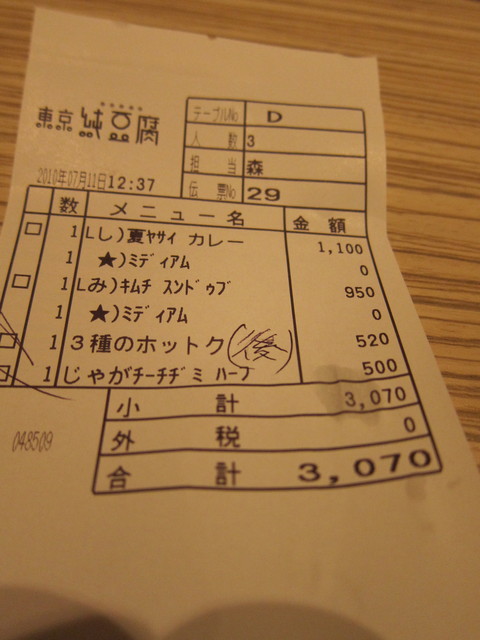 東京 純豆腐
テーブルNo D
人数 3
担当 森
伝票No 29
2010年07月11日12:37
数 メニュー名 金額
1 Lし)夏ヤサイ カレー 1,100
1 ★)ミディアム 0
1 Lみ)キムチ スンドゥブ 950
1 ★)ミディアム 0
1 3種のホットク (後) 520
1 じゃがチーチヂミ ハーフ 500
小計 3,070
外税 0
合計 3,070
048509